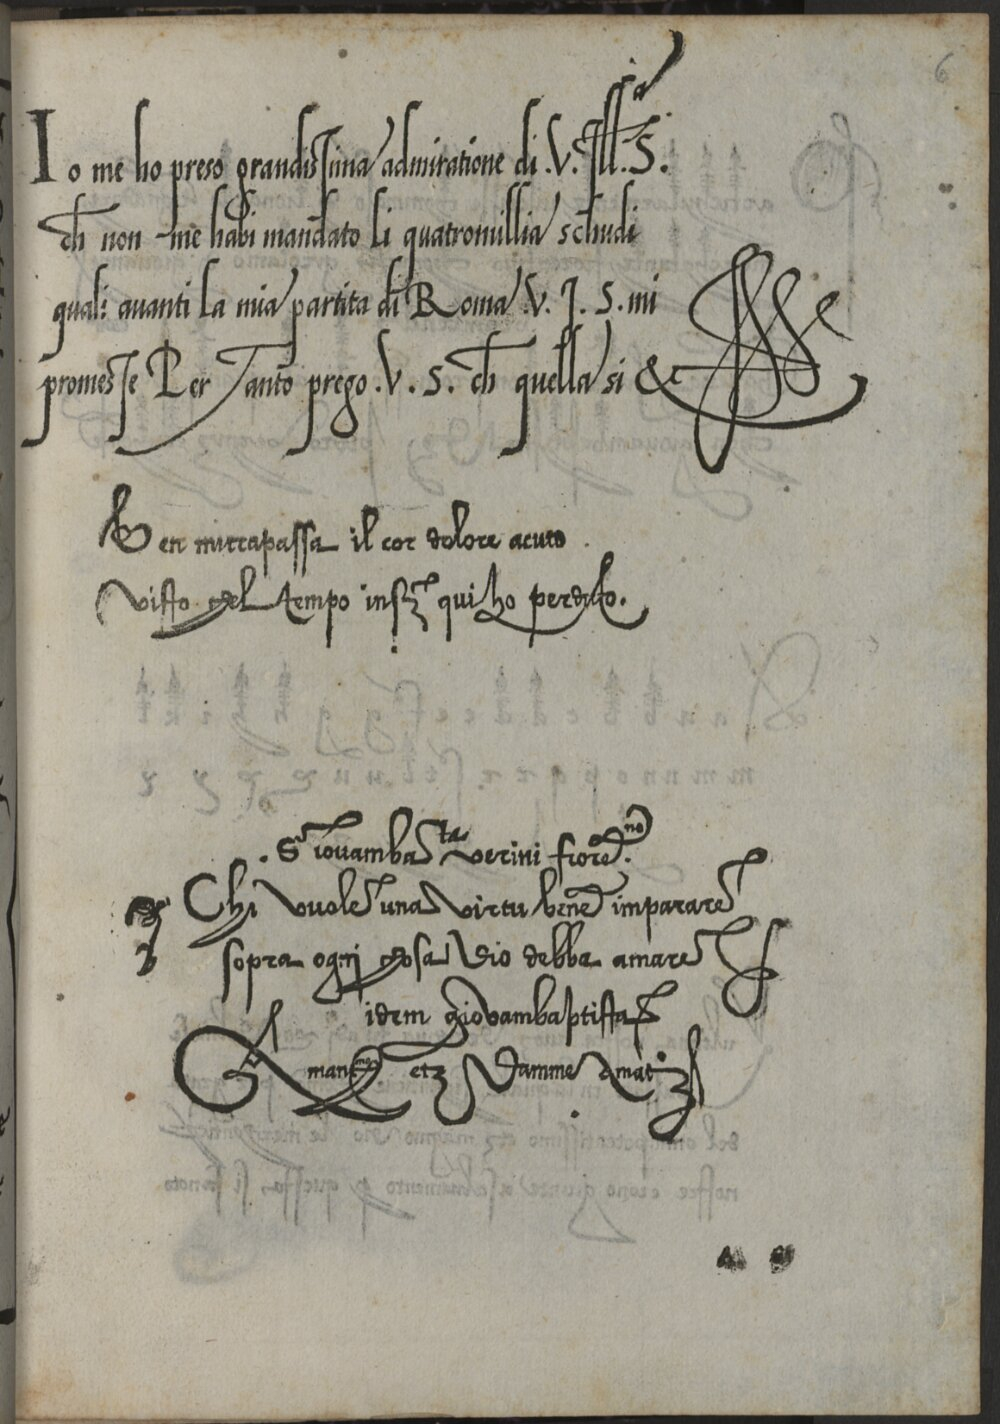 6
Io me ho preso grandissima admiratione di .V. Ill.ᵃ S.
ch non me habi mandato li quatromillia schudi
quali auanti la mia partita di Roma .V. I. S. mi
promesse Per Tanto prego .V. S. ch quella si &
Ben mi trapassa il cor dolore acuto
visto del tempo insqui ho perduto.
. S iouambaᵗᵃ verini fiorēⁿᵒ.
Chi vuole una virtu bene imparare
sopra ogni cosa dio debba amare
idem giovambaptista
manᵐᵒ etz Damme